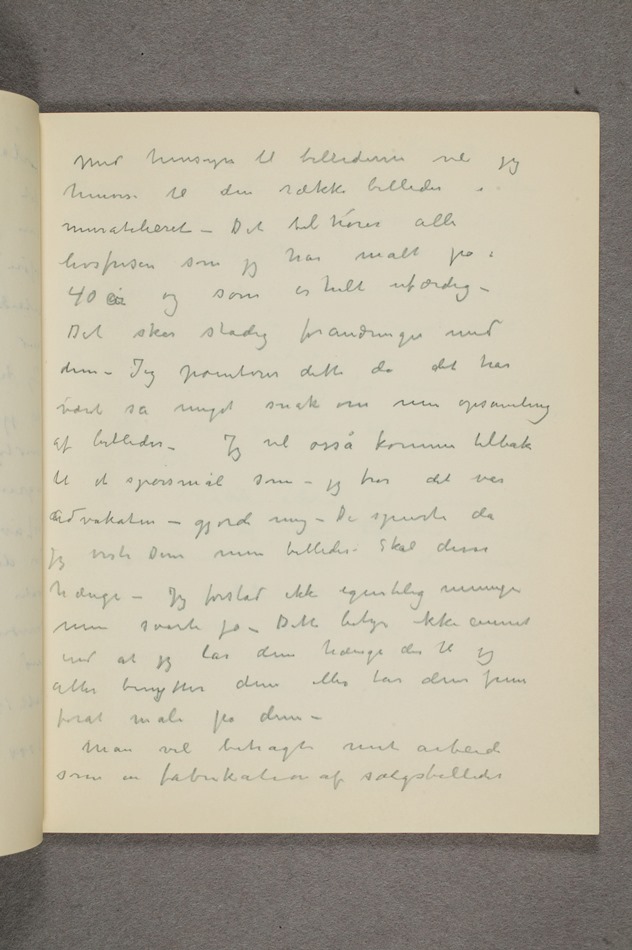 Med hensyn til billederne vil jeg
henvise til den række billeder i
muratelieret – Det tilhører alle
livsfrisen som jeg har malt på i
40 år og som er helt ufærdig –
Det skær stadig forandringer med
dem – Jeg pointerer dette da det har
vært så meget snak om min opsamling
af billeder – Jeg vil også komme tilbake
til et spørsmål som – jeg tror det var
advokaten – gjorde mig – De spurte da
jeg viste Dem mine billeder. Skal disse
hænge – Jeg forstod ikke egentlig meningen
men svarte ja – Dette betyr ikke annet
end at jeg lar dem hænge der til jeg
atter benytter dem eller tar dem frem
forat male på dem –
Man vil betragte mit arbeide
som en fabrikation af salgsbilleder